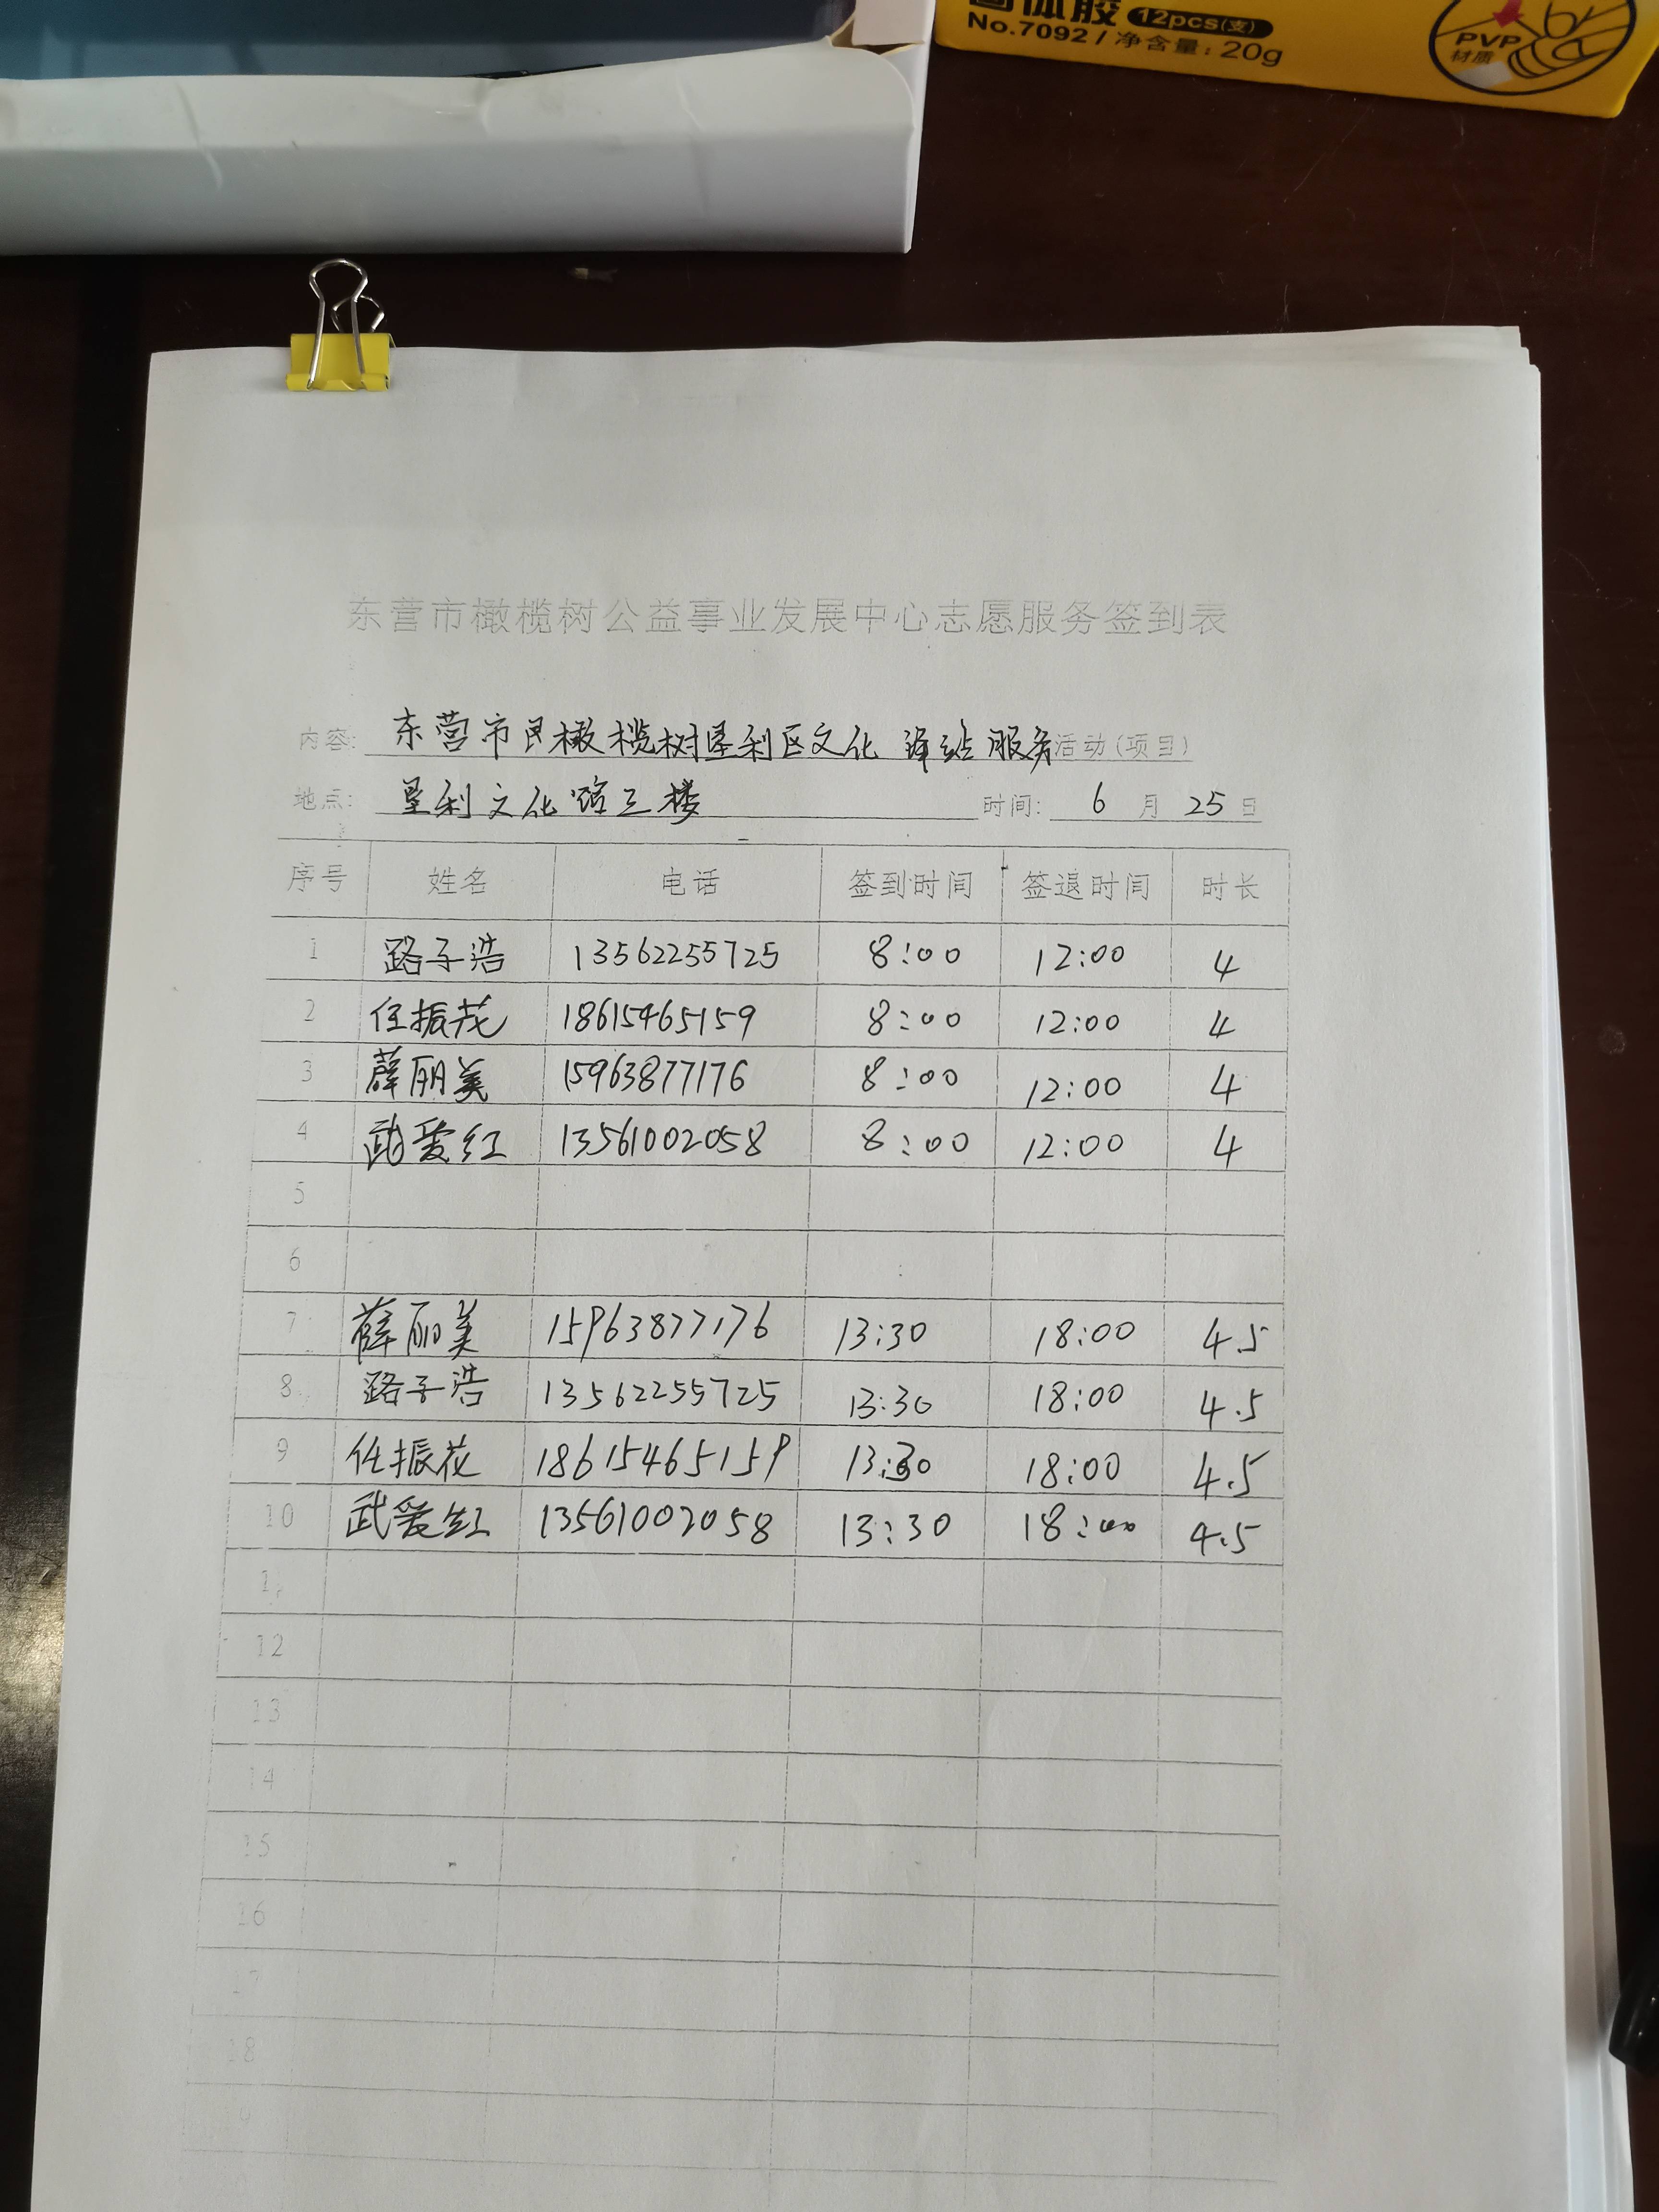 固体胶 12pcs(支)
No.7092 / 净含量: 20g
PVP
材质
东营市橄榄树公益事业发展中心志愿服务签到表
内容: 东营市橄榄树垦利区文化驿站服务活动(项目)
地点: 垦利文化馆三楼 时间: 6 月 25 日
序号 姓名 电话 签到时间 签退时间 时长
1 路子浩 13562255725 8:00 12:00 4
2 任振花 18615465159 8:00 12:00 4
3 薛丽美 15963877176 8:00 12:00 4
4 武爱红 13561002058 8:00 12:00 4
5
6
7 薛丽美 15963877176 13:30 18:00 4.5
8 路子浩 13562255725 13:30 18:00 4.5
9 任振花 18615465159 13:30 18:00 4.5
10 武爱红 13561002058 13:30 18:00 4.5
12
13
14
15
16
17
18